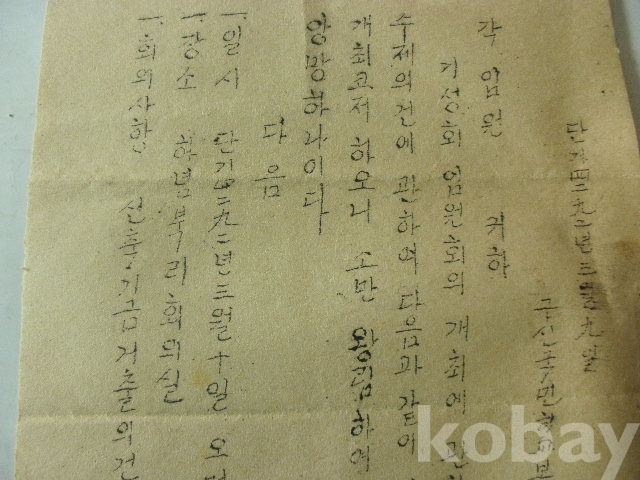 단기四二九二年三月九日
각 임원 귀하
기성회 임원회의 개최에 관하
수제의건에 관하여 다음과 같이
개최코저 하오니 소만 왕림하여
앙망하나이다
다음
一. 일시 단기四二九二년三월十일 오
一. 장소 학녕북리회의실
一. 회의사항
신축기금거출의건
kobay